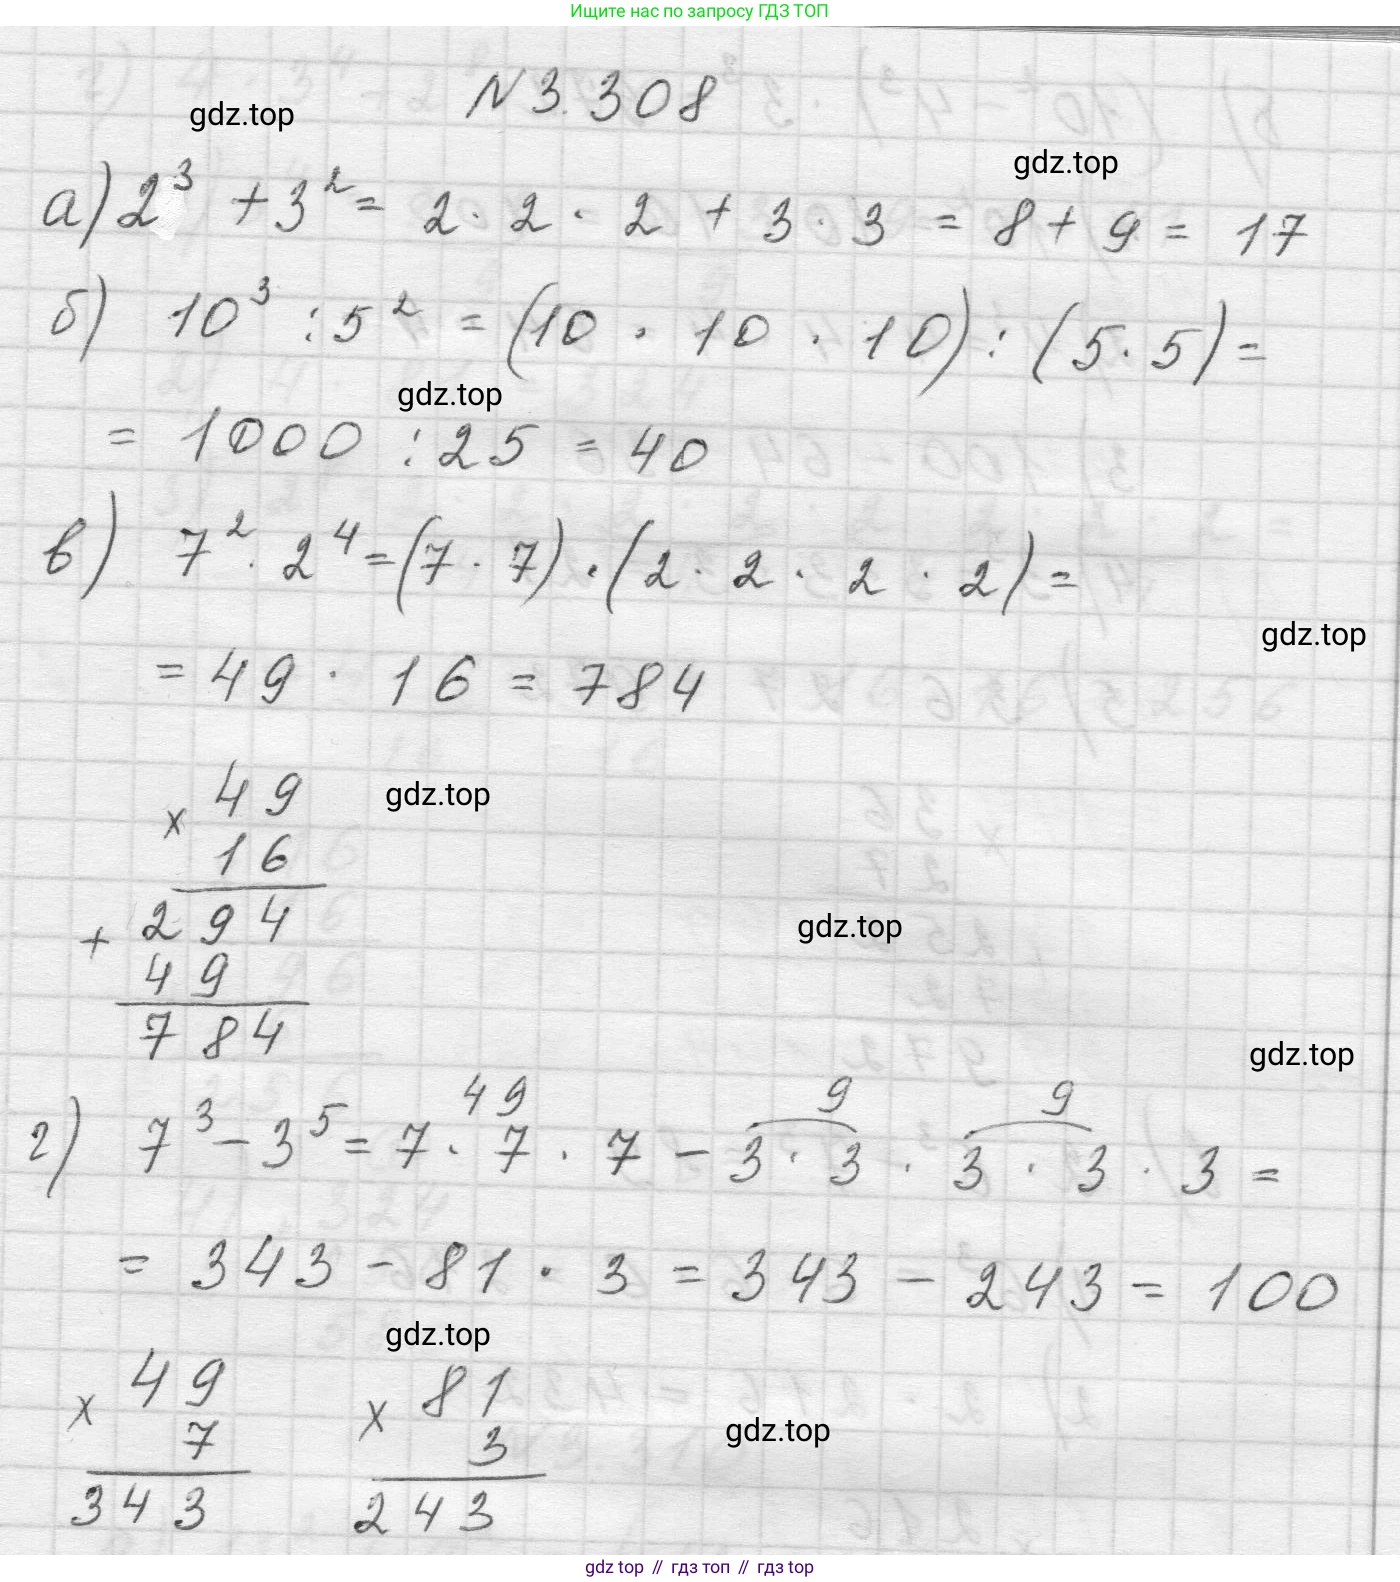 Ищите нас по запросу ГДЗ ТОП
N 3.308
gdz.top
gdz.top
а) 2³ + 3² = 2 · 2 · 2 + 3 · 3 = 8 + 9 = 17
б) 10³ : 5² = (10 · 10 · 10) : (5 · 5) =
gdz.top
= 1000 : 25 = 40
в) 7² · 2⁴ = (7 · 7) · (2 · 2 · 2 · 2) =
gdz.top
= 49 · 16 = 784
× 49
gdz.top
16
+ 294
gdz.top
49
784
gdz.top
49 9 9
г) 7³ - 3⁵ = 7 · 7 · 7 - 3 · 3 · 3 · 3 · 3 =
= 343 - 81 · 3 = 343 - 243 = 100
gdz.top
× 49 × 81
gdz.top
7 3
343 243
gdz top // гдз топ // gdz top